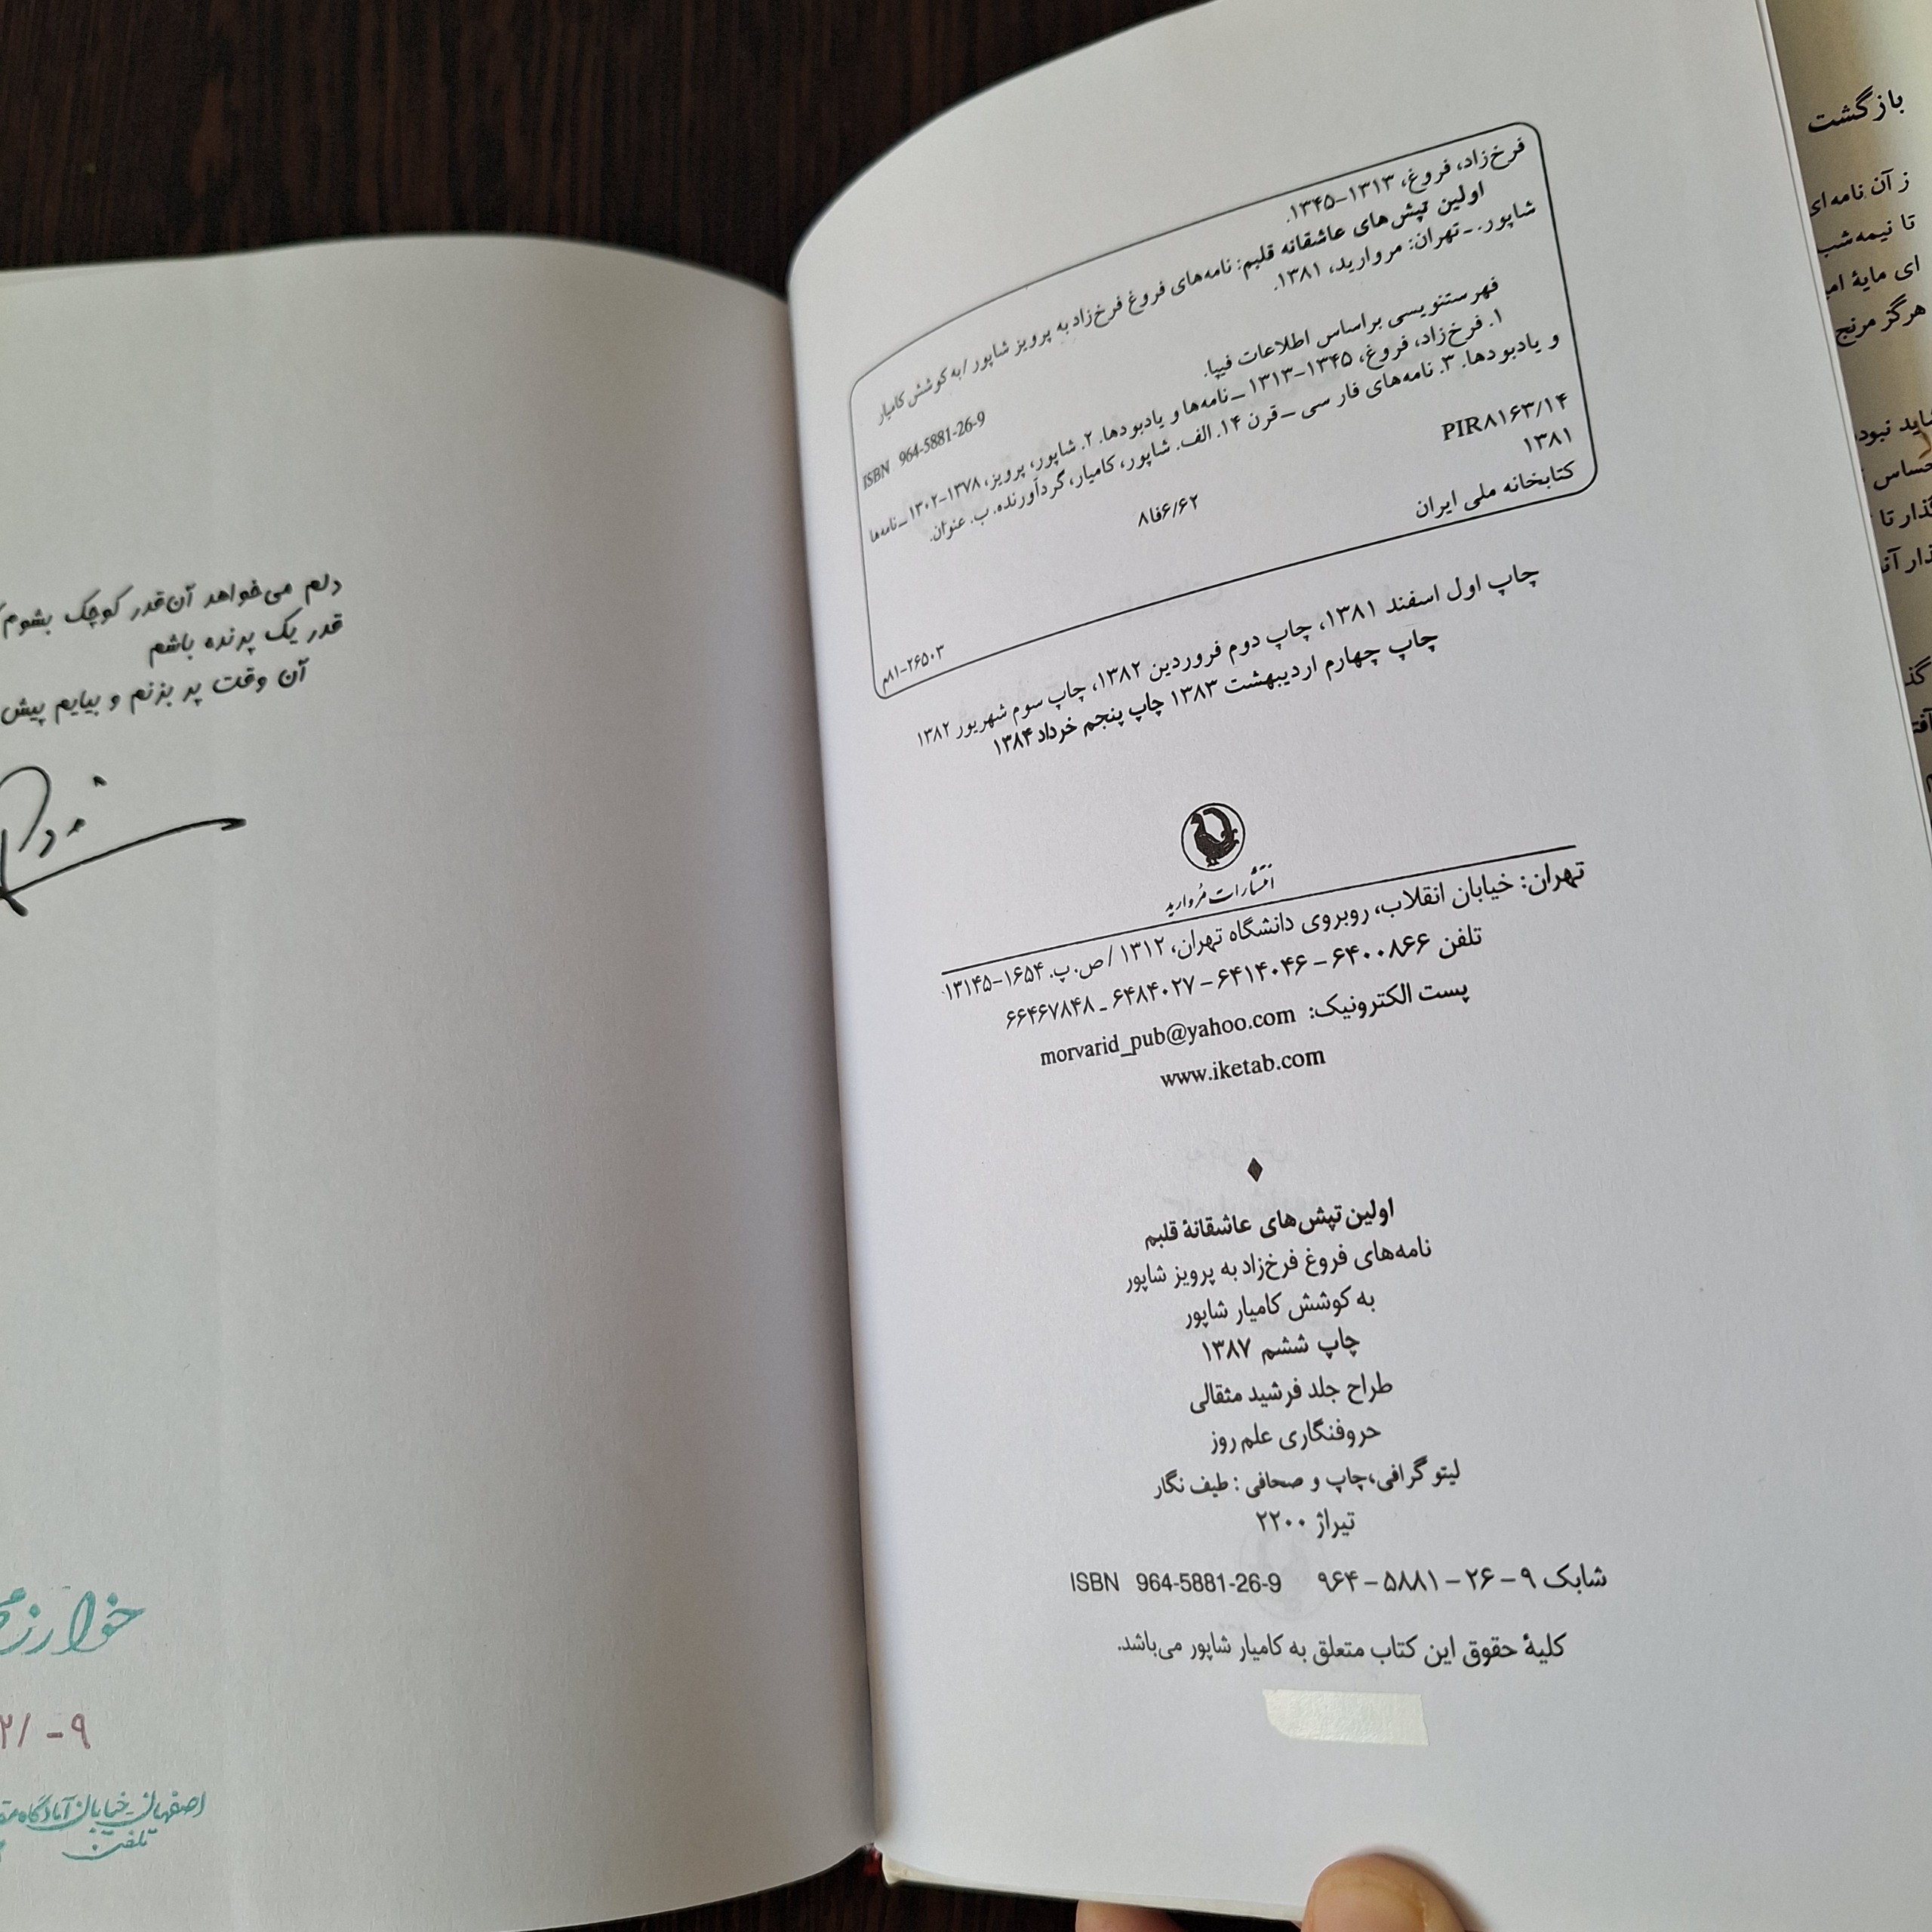 فرخ‌زاد، فروغ، ۱۳۱۳-۱۳۴۵.
اولین تپش‌های عاشقانه قلبم: نامه‌های فروغ فرخ‌زاد به پرویز شاپور / به کوشش کامیار
شاپور. ـ تهران: مروارید، ۱۳۸۱.
ISBN 964-5881-26-9
فهرستنویسی براساس اطلاعات فیپا.
۱. فرخ‌زاد، فروغ، ۱۳۴۵-۱۳۱۳ ــ نامه‌ها و یادبودها. ۲. شاپور، پرویز، ۱۳۷۸-۱۳۰۲ ــ نامه‌ها
و یادبودها. ۳. نامه‌های فارسی ــ قرن ۱۴. الف. شاپور، کامیار، گردآورنده. ب. عنوان.
PIR۸۱۶۳/۱۴ ۸فا۶/۶۲
۱۳۸۱
کتابخانه ملی ایران ۸۱-۲۶۵۰۳م
چاپ اول اسفند ۱۳۸۱، چاپ دوم فروردین ۱۳۸۲، چاپ سوم شهریور ۱۳۸۲
چاپ چهارم اردیبهشت ۱۳۸۳ چاپ پنجم خرداد ۱۳۸۴
انتشارات مروارید
تهران: خیابان انقلاب، روبروی دانشگاه تهران، ۱۳۱۲ / ص. پ. ۱۶۵۴-۱۳۱۴۵
تلفن ۶۴۰۰۸۶۶ - ۶۴۱۴۰۴۶ - ۶۴۸۴۰۲۷ ـ ۶۶۴۶۷۸۴۸
پست الکترونیک: morvarid_pub@yahoo.com
www.iketab.com
اولین تپش‌های عاشقانۀ قلبم
نامه‌های فروغ فرخ‌زاد به پرویز شاپور
به کوشش کامیار شاپور
چاپ ششم ۱۳۸۷
طراح جلد فرشید مثقالی
حروفنگاری علم روز
لیتوگرافی، چاپ و صحافی : طیف نگار
تیراژ ۲۲۰۰
شابک ۹-۲۶-۵۸۸۱-۹۶۴ ISBN 964-5881-26-9
کلیۀ حقوق این کتاب متعلق به کامیار شاپور می‌باشد.
دلم می‌خواهد آن‌قدر کوچک بشوم
قدر یک پرنده باشم
آن وقت پر بزنم و بیایم پیش
۹-
اصفهان_خیابان آمادگاه
تلفن
بازگشت
ز آن نامه‌ای
تا نیمه‌شب
ای مایۀ
هرگز مرنج
نبود